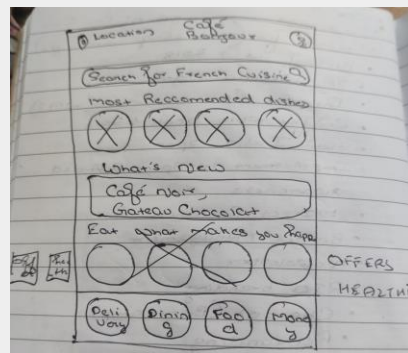 Location
Café
Bonjour
Search for French Cuisine
Most Reccomended dishes
What's New
Café Noir,
Gateau Chocolat
Eat what makes you happy
OFFERS
HEALTHY
Deli
very
Dinin
g
Foo
d
Mone
y